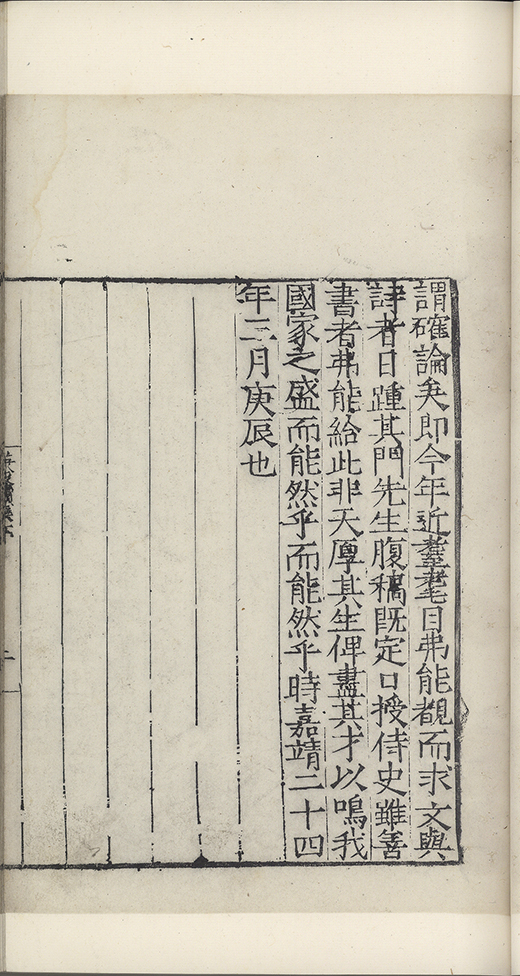 謂確論矣即今年近羣耄目弗能覩而求文與
詩者日踵其門先生腹稿既定口授侍史雖善
書者弗能給此非天厚其生俾盡其才以鳴我
國家之盛而能然乎而能然乎時嘉靖二十四
年三月庚辰也